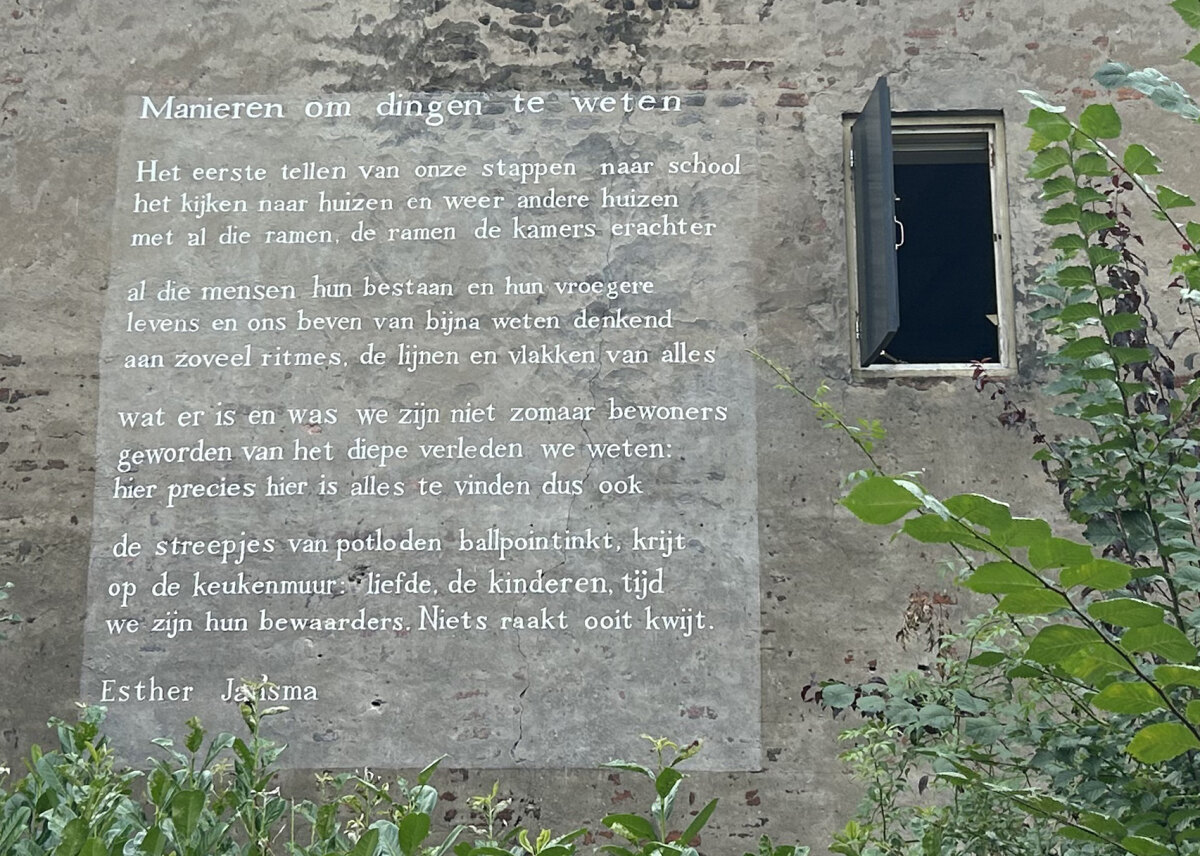 Manieren om dingen te weten
Het eerste tellen van onze stappen naar school
het kijken naar huizen en weer andere huizen
met al die ramen, de ramen de kamers erachter
al die mensen hun bestaan en hun vroegere
levens en ons beven van bijna weten denkend
aan zoveel ritmes, de lijnen en vlakken van alles
wat er is en was we zijn niet zomaar bewoners
geworden van het diepe verleden we weten:
hier precies hier is alles te vinden dus ook
de streepjes van potloden ballpointinkt, krijt
op de keukenmuur: liefde, de kinderen, tijd
we zijn hun bewaarders. Niets raakt ooit kwijt.
Esther Jansma